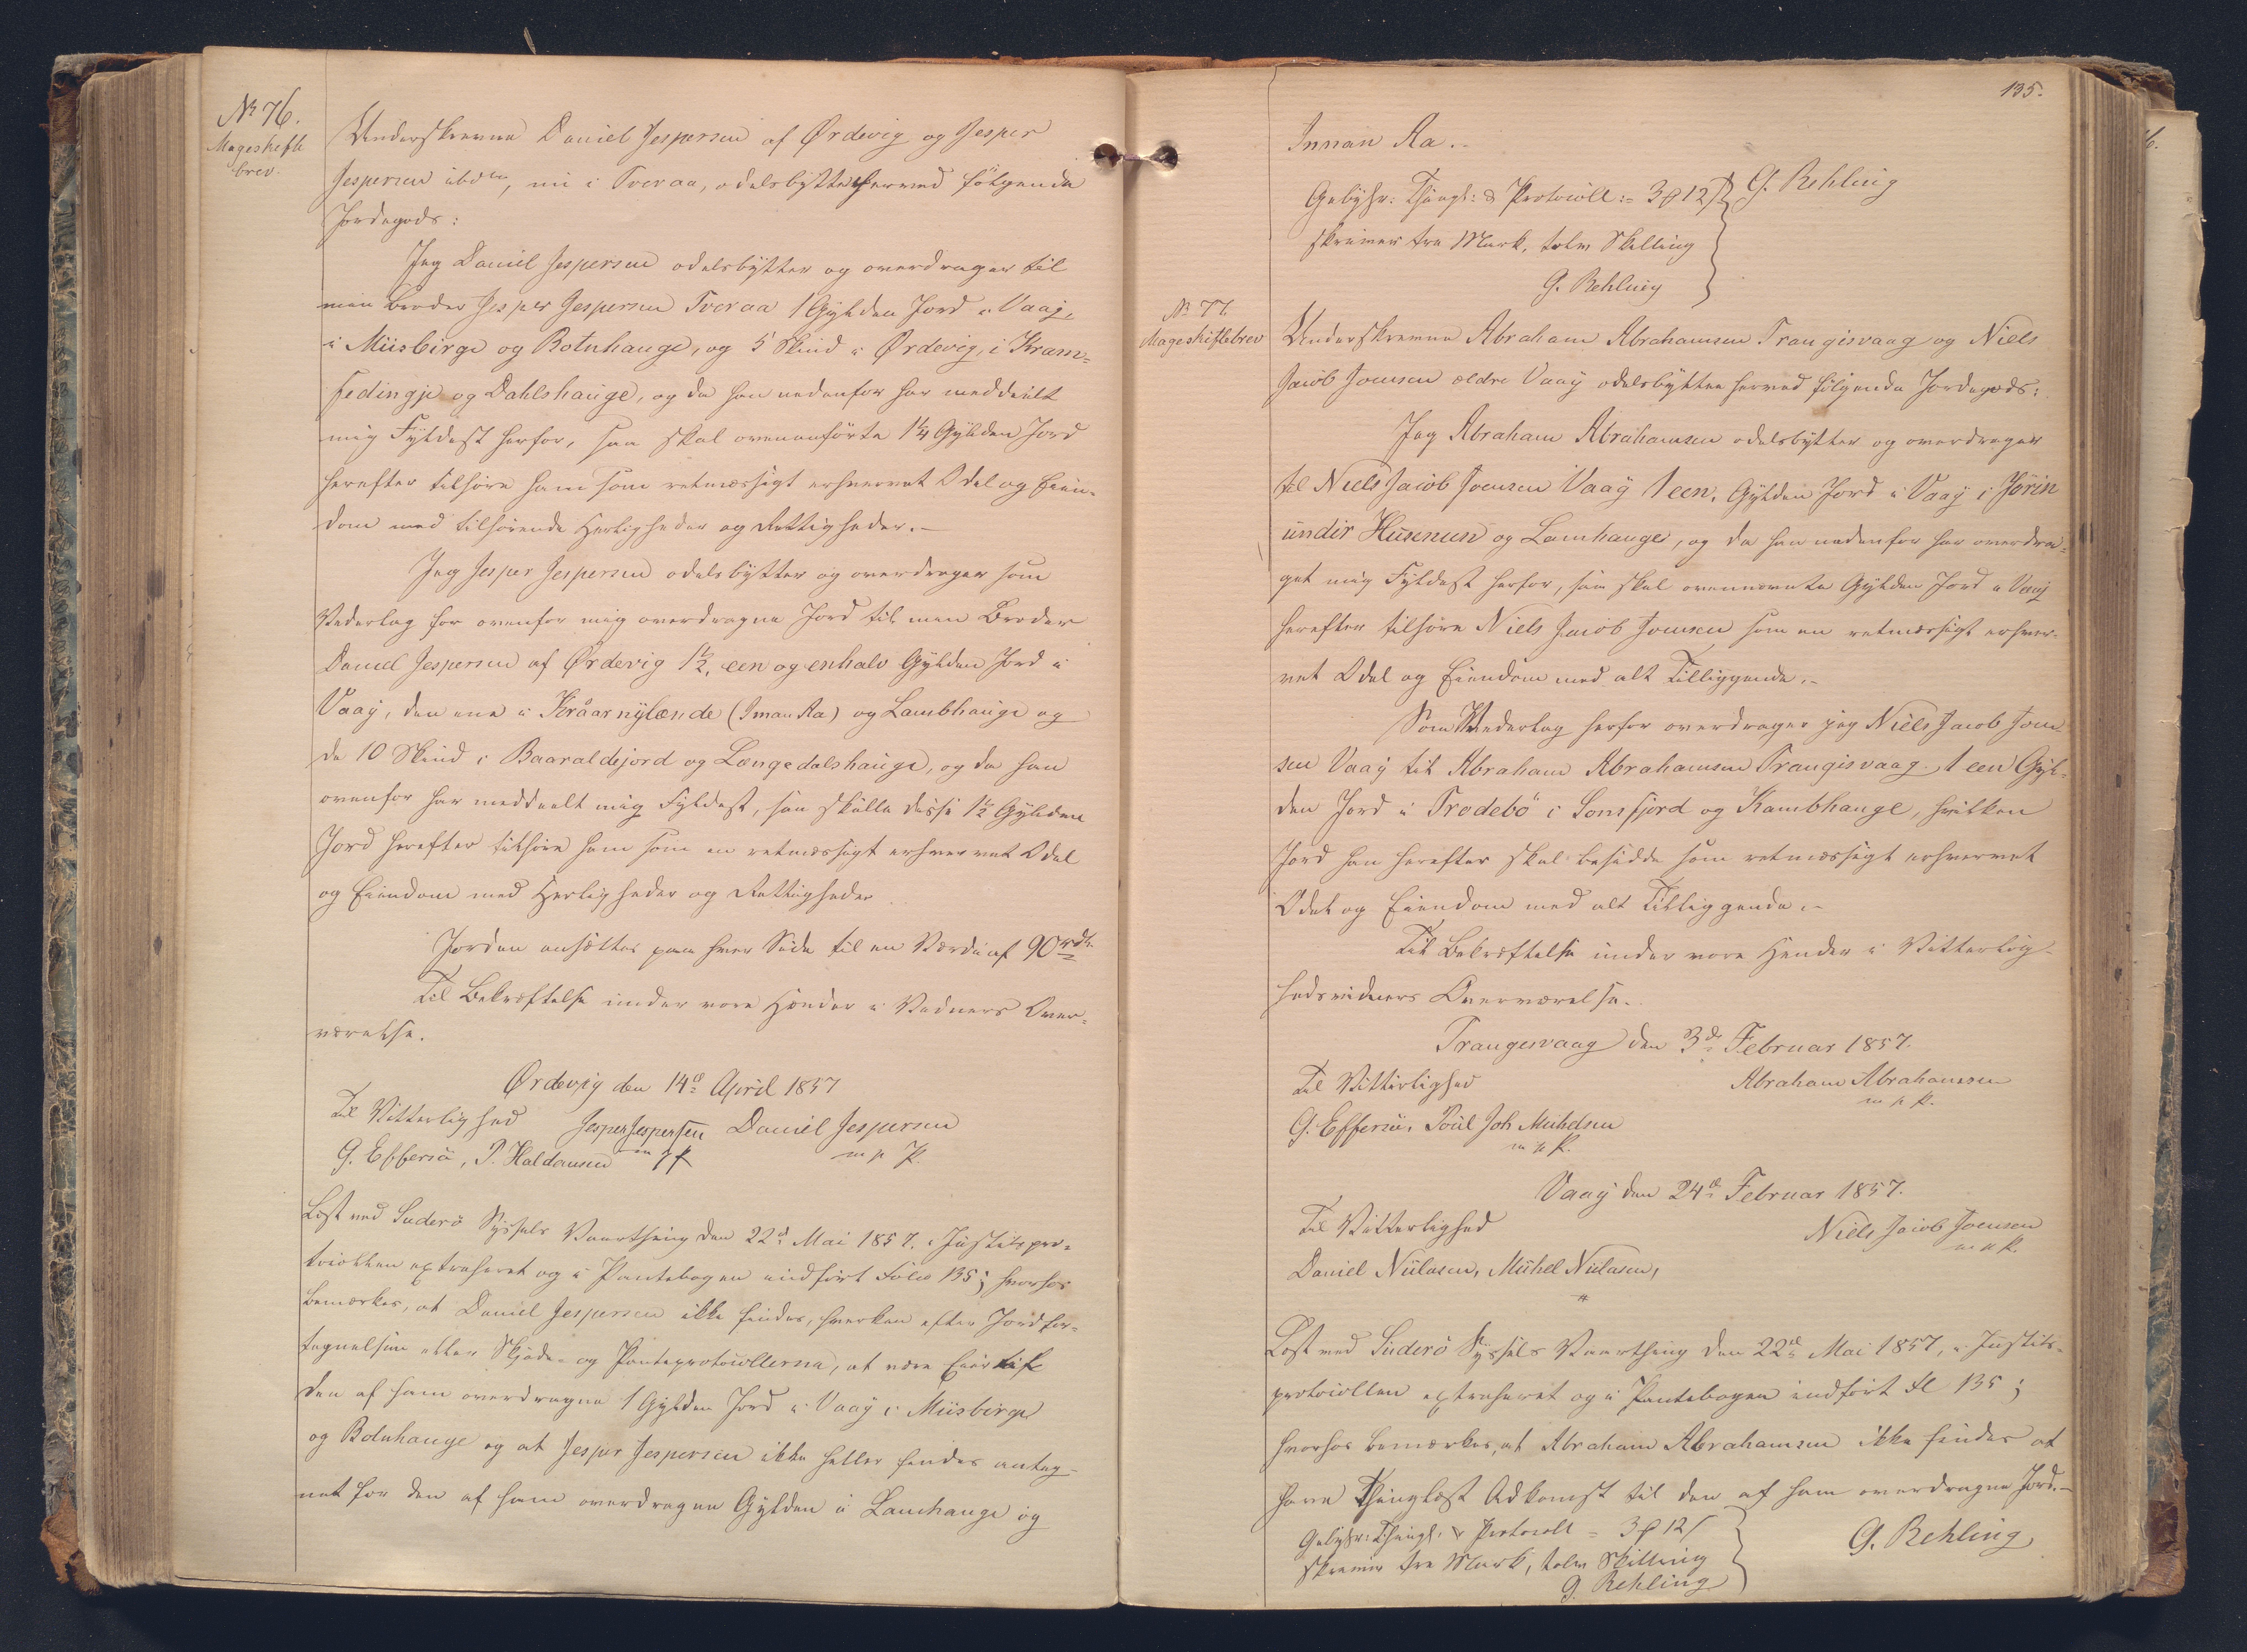 No 76.
Mageskifte
brev.
Underskrevne Daniel Jespersen af Ørdevig og Jesper
Jespersen ibdm, nu i Tveraa, odelsbytte herved følgende
Jordegods:
Jeg Daniel Jespersen odelsbytter og overdrager til
min Broder Jesper Jespersen Tveraa 1 Gylden Jord i Vaag,
i Miisbirge og Botnhauge, og 5 Skind i Ørdevig, i Kram-
fedingje og Dahlshauge, og da han nedenfor har meddeelt
mig Fyldest herfor, saa skal ovenanførte 1 1/4 Gylden Jord
herefter tilhøre ham som retmæssigt erhvervet Odel og Eien-
dom med tilhørende Herligheder og Rettigheder.-
Jeg Jesper Jespersen odelsbytter og overdrager som
Vederlag for ovenfor mig overdragne Jord til min Broder
Daniel Jespersen af Ørdevig 1 1/2, een og enhalv Gylden Jord i
Vaag, den ene i Kråarnylænde (Innan Aa) og Lambhauge og
de 10 Skind i Baaraldejord og Længedalshauge, og da han
ovenfor har meddeelt mig Fyldest, saa skulle disse 1 1/2 Gylden
Jord herefter tilhøre ham som en retmæssigt erhvervet Odel
og Eiendom med Herligheder og Rettigheder.
Jorden ansættes paa hver Side til en Værdie af 90 rdr.
Til Bekræftelse under vore Hænder i Vidners Over-
værelse.
Ørdevig den 14de April 1857
Til Vitterlighed Jesper Jespersen Daniel Jespersen
G. Effersö, P. Haldansen m p p m p p.
Læst ved Suderö Syssels Vaarthing den 22de Mai 1857, i Justitspro-
tocollen extraheret og i Pantebogen indført Folio 135; hvorhos
bemærkes, at Daniel Jespersen ikke findes, hverken efter Jordfor-
tegnelsen eller Skjøde- og Panteprotocollerne, at være Eier af
den af ham overdragne 1 Gylden Jord i Vaag i Miisbirge
og Botnhauge og at Jesper Jespersen ikke heller findes anteg-
net for den af ham overdragne Gylden i Lamhauge og
135.
Innan Aa.-
Gebyhr: Thingl: & Protocoll: = 3 ₰ 12 ß G. Rehling
skriver tre Mark, tolv Skilling
G. Rehling
No 77.
Mageskiftebrev
Underskrevne Abraham Abrahamsen Trangisvaag og Niels
Jacob Joensen ældre Vaag odelsbytte herved følgende Jordegods:
Jeg Abraham Abrahamsen odelsbytter og overdrager
til Niels Jacob Joensen Vaag 1 een, Gylden Jord i Vaag i Jörin
undir Husunun og Lamhauge, og da han nedenfor har overdra-
get mig Fyldest herfor, saa skal ovennævnte Gylden Jord i Vaag
herefter tilhøre Niels Jacob Joensen som en retmæssigt erhver-
vet Odel og Eiendom med alt Tilliggende.-
Som Vederlag herfor overdrager jeg Niels Jacob Joen-
sen Vaag til Abraham Abrahamsen Trangisvaag 1 een Gyl-
den Jord i Trodebö i Sonsfjord og Kambhauge, hvilken
Jord han herefter skal besidde som retmæssigt erhvervet
Odel og Eiendom med alt Tilliggende.-
Til Bekræftelse under vore Hænder i Vitterlig-
hedsvidners Overværelse.
Trangesvaag den 3de Februar 1857.
Til Vitterlighed Abraham Abrahamsen
m p p.
G. Effersö, Poul Joh Mickelsen
m p p.
Vaag den 24de Februar 1857.
Til Vitterlighed Niels Jacob Joensen
m p p.
Daniel Niclasen, Michel Niclasen,
Læst ved Suderö Syssels Vaarthing den 22de Mai 1857, i Justits-
protocollen extraheret og i Pantebogen indført Fol 135;
hvorhos bemærkes, at Abraham Abrahamsen ikke findes at
have Thinglæst Adkomst til den af ham overdragne Jord.-
Gebyhr: Thingl. & Protocoll = 3 ₰ 12 ß G. Rehling
skriver tre Mark, tolv Skilling
G. Rehling